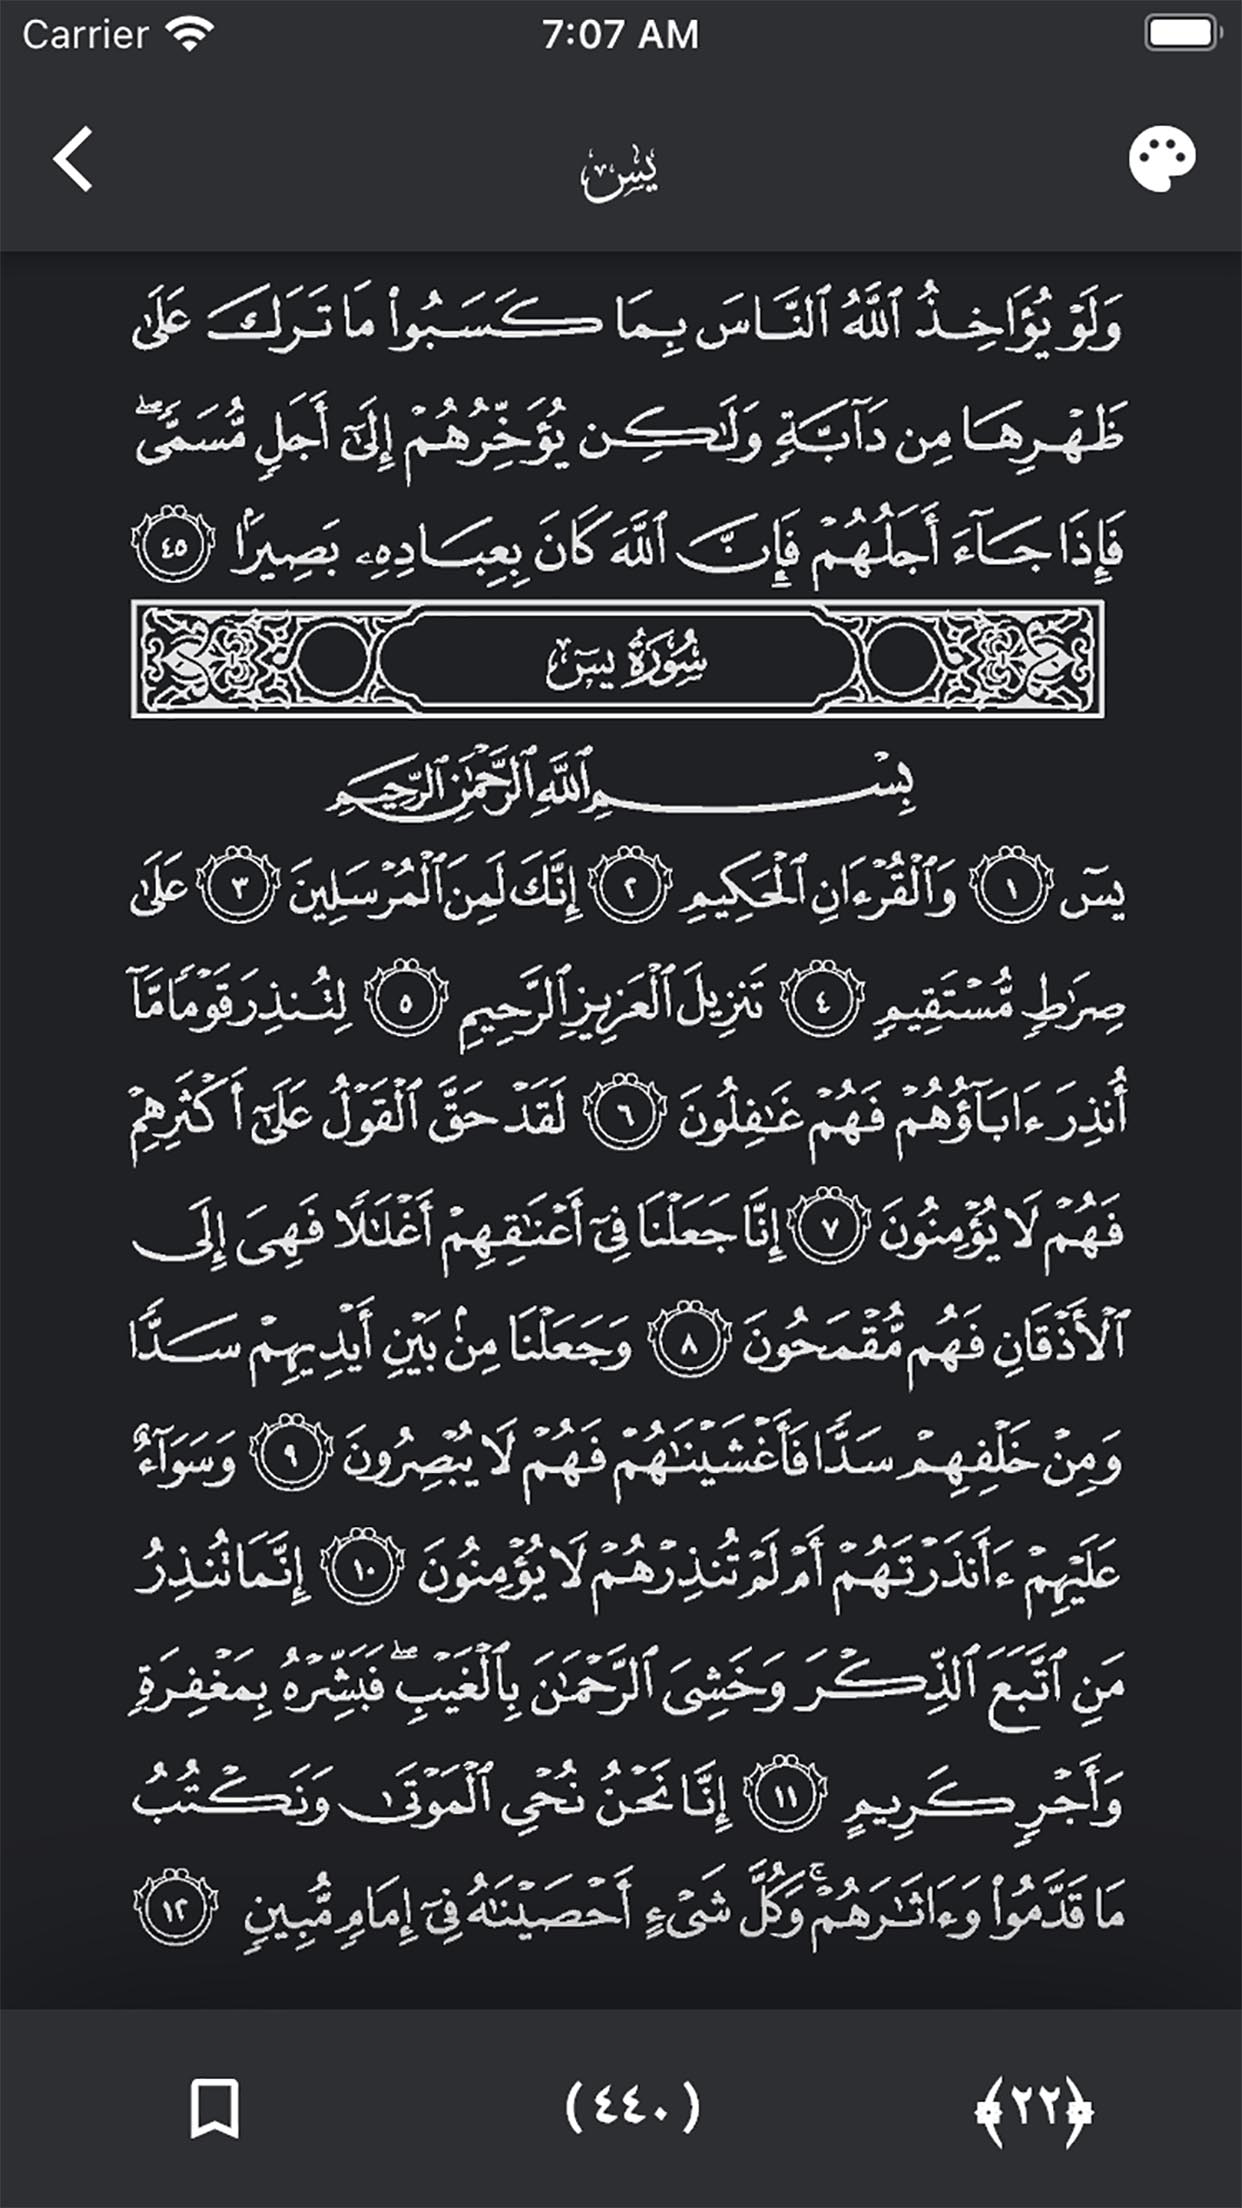 Carrier 7:07 AM
يسٓ
وَلَوۡ يُؤَاخِذُ ٱللَّهُ ٱلنَّاسَ بِمَا كَسَبُواْ مَا تَرَكَ عَلَىٰ
ظَهۡرِهَا مِن دَآبَّةٖ وَلَٰكِن يُؤَخِّرُهُمۡ إِلَىٰٓ أَجَلٖ مُّسَمّٗىۖ
فَإِذَا جَآءَ أَجَلُهُمۡ فَإِنَّ ٱللَّهَ كَانَ بِعِبَادِهِۦ بَصِيرَۢا ٤٥
سُورَةُ يسٓ
بِسۡمِ ٱللَّهِ ٱلرَّحۡمَٰنِ ٱلرَّحِيمِ
يسٓ ١ وَٱلۡقُرۡءَانِ ٱلۡحَكِيمِ ٢ إِنَّكَ لَمِنَ ٱلۡمُرۡسَلِينَ ٣ عَلَىٰ
صِرَٰطٖ مُّسۡتَقِيمٖ ٤ تَنزِيلَ ٱلۡعَزِيزِ ٱلرَّحِيمِ ٥ لِتُنذِرَ قَوۡمٗا مَّآ
أُنذِرَ ءَابَآؤُهُمۡ فَهُمۡ غَٰفِلُونَ ٦ لَقَدۡ حَقَّ ٱلۡقَوۡلُ عَلَىٰٓ أَكۡثَرِهِمۡ
فَهُمۡ لَا يُؤۡمِنُونَ ٧ إِنَّا جَعَلۡنَا فِيٓ أَعۡنَٰقِهِمۡ أَغۡلَٰلٗا فَهِيَ إِلَى
ٱلۡأَذۡقَانِ فَهُم مُّقۡمَحُونَ ٨ وَجَعَلۡنَا مِنۢ بَيۡنِ أَيۡدِيهِمۡ سَدّٗا
وَمِنۡ خَلۡفِهِمۡ سَدّٗا فَأَغۡشَيۡنَٰهُمۡ فَهُمۡ لَا يُبۡصِرُونَ ٩ وَسَوَآءٌ
عَلَيۡهِمۡ ءَأَنذَرۡتَهُمۡ أَمۡ لَمۡ تُنذِرۡهُمۡ لَا يُؤۡمِنُونَ ١٠ إِنَّمَا تُنذِرُ
مَنِ ٱتَّبَعَ ٱلذِّكۡرَ وَخَشِيَ ٱلرَّحۡمَٰنَ بِٱلۡغَيۡبِۖ فَبَشِّرۡهُ بِمَغۡفِرَةٖ
وَأَجۡرٖ كَرِيمٍ ١١ إِنَّا نَحۡنُ نُحۡيِ ٱلۡمَوۡتَىٰ وَنَكۡتُبُ
مَا قَدَّمُواْ وَءَاثَٰرَهُمۡۚ وَكُلَّ شَيۡءٍ أَحۡصَيۡنَٰهُ فِيٓ إِمَامٖ مُّبِينٖ ١٢
﴿٢٢﴾ (٤٤٠)